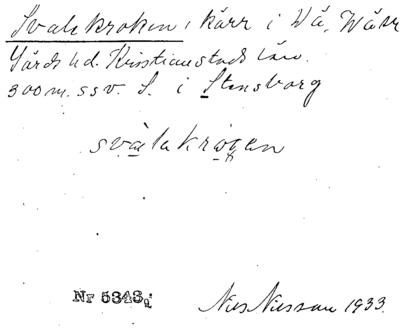 Svalekroken, kärr i Wä,
Gärds hd. Kristianstads län.
300 m. ssv. S. i Stensborg
svàlakrogen
Nr 5343
Nils Nilsson 1933.